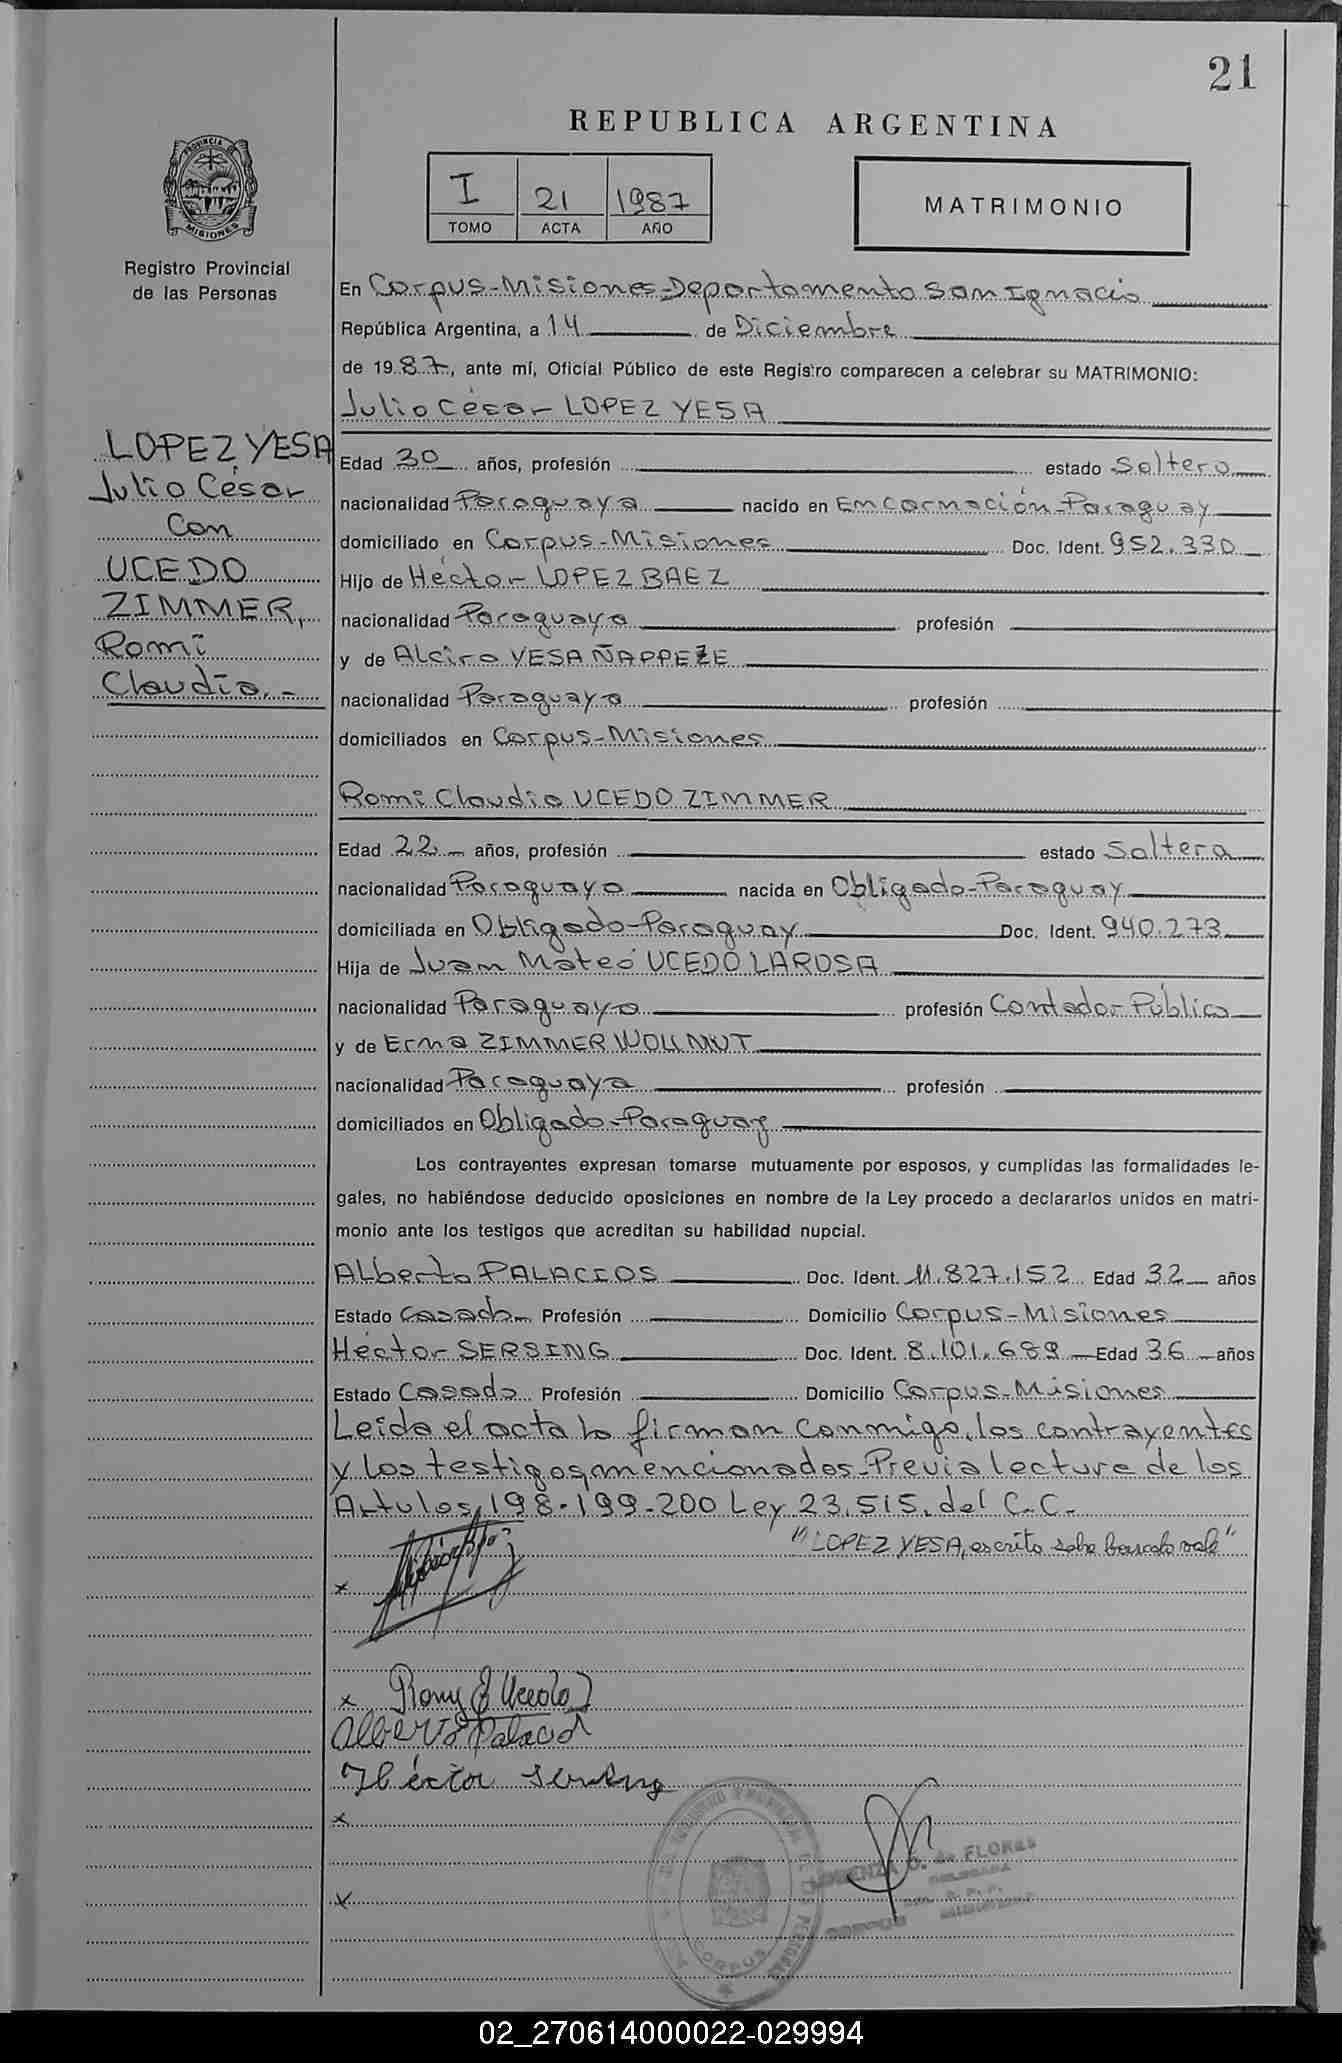 21
REPUBLICA ARGENTINA
PROVINCIA DE
MISIONES
Registro Provincial
de las Personas
I 21 1987
TOMO ACTA AÑO
MATRIMONIO
En Corpus-Misiones-Departamento San Ignacio
República Argentina, a 14 de Diciembre
de 1987, ante mí, Oficial Público de este Registro comparecen a celebrar su MATRIMONIO:
Julio César LOPEZ YESA
LOPEZ YESA
Julio César
Con
UCEDO
ZIMMER,
Romi
Claudia.-
Edad 30 años, profesión estado Soltero
nacionalidad Paraguaya nacido en Encarnación-Paraguay
domiciliado en Corpus-Misiones Doc. Ident. 952.330
Hijo de Héctor LOPEZ BAEZ
nacionalidad Paraguaya profesión
y de Alcira YESA ÑAPPEZE
nacionalidad Paraguaya profesión
domiciliados en Corpus-Misiones
Romi Claudia UCEDO ZIMMER
Edad 22 años, profesión estado Soltera
nacionalidad Paraguaya nacida en Obligado-Paraguay
domiciliada en Obligado-Paraguay Doc. Ident. 940.273
Hija de Juan Mateó UCEDO LAROSA
nacionalidad Paraguaya profesión Contador Público
y de Erma ZIMMER WOLLMUT
nacionalidad Paraguaya profesión
domiciliados en Obligado-Paraguay
Los contrayentes expresan tomarse mutuamente por esposos, y cumplidas las formalidades le-
gales, no habiéndose deducido oposiciones en nombre de la Ley procedo a declararlos unidos en matri-
monio ante los testigos que acreditan su habilidad nupcial.
Alberto PALACIOS Doc. Ident. 11.827.152 Edad 32 años
Estado Casado Profesión Domicilio Corpus-Misiones
Héctor SERSING Doc. Ident. 8.101.689 Edad 36 años
Estado Casado Profesión Domicilio Corpus-Misiones
Leída el acta la firman conmigo, los contrayentes
y los testigos mencionados-Previa lectura de los
Artulos 198-199-200 Ley 23.515. del C.C.-
"LOPEZ YESA, escrito sobre borrado vale"
x
x Romy Ucedo
Alberto Palacio
Héctor Sersing
x
x
CORPUS
LORENZA O. de FLORES
DELEGADA
02_270614000022-029994